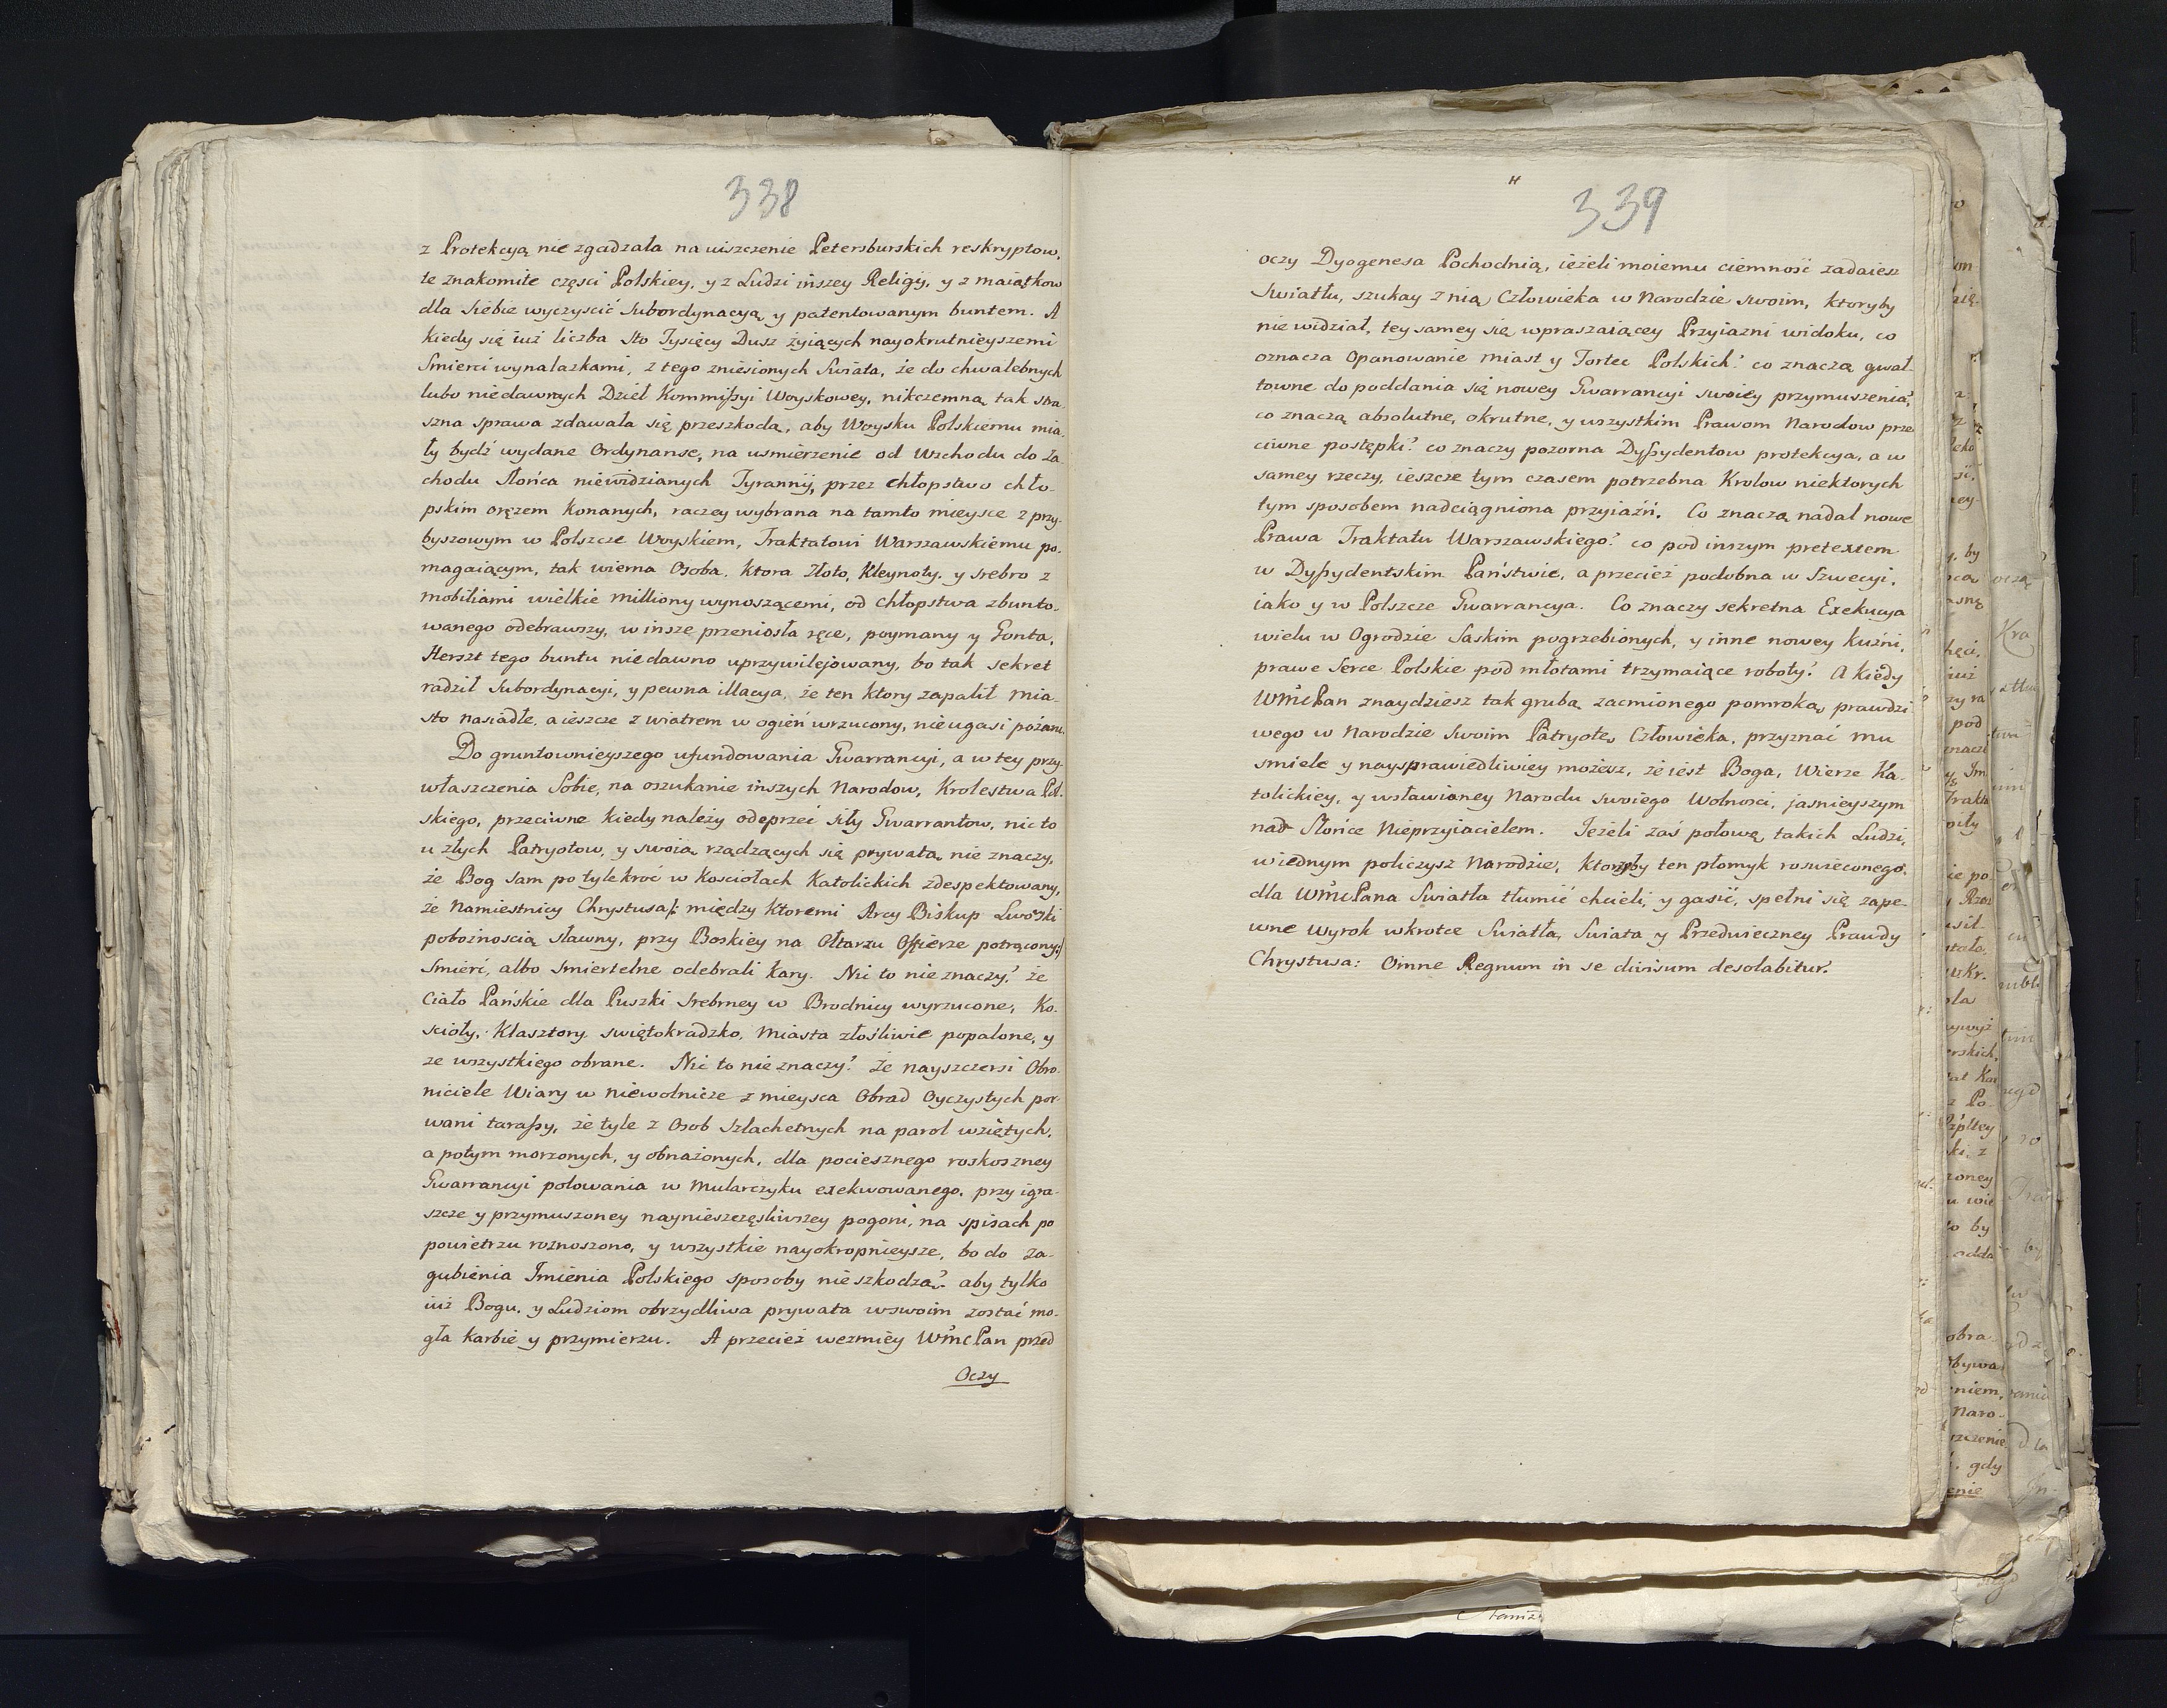 338
z Protekcyą nie zgadzała na uiszczenie Petersburskich reskryptow,
te znakomite częsci Polskiey, y z Ludzi inszey Religij, y z maiątkow
dla siebie wyczyscić Subordynacyą y patentowanym buntem. A
kiedy się iuż liczba sto Tysięcy Dusz żyiących nayokrutnieyszemi
Smierci wynalazkami, z tego zniesionych Swiata, że do chwalebnych
lubo niedawnych Dzieł Kommißyi Woyskowey, nikczemną tak stra-
szna sprawa zdawała się przeszkodą, aby Woysku Polskiemu mia-
ły bydź wydane Ordynanse, na usmierzenie od Wschodu do Za-
chodu Słońca niewidzianych Tyrannij, przez chłopstwo chło-
pskim orężem konanych, raczey wybrana na tamto mieysce z przy-
byszowym w Polszcze Woyskiem, Traktatowi Warszawskiemu po-
magaiącym, tak wierna Osoba, ktora Złoto, Kleynoty, y srebro z
mobiliami wielkie milliony wynoszącemi, od chłopstwa zbunto-
wanego odebrawszy, w insze przeniosła ręce, poymany y Gonta,
Herszt tego buntu niedawno uprzywilejowany, bo tak sekret
radził Subordynacyi, y pewna illacya, że ten ktory zapalił mia-
sto nasiadłe, a ieszcze z wiatrem w ogień wrzucony, nieugasi pożaru.
Do gruntownieyszego ufundowania Gwarrancyi, a w tey przy-
właszczenia Sobie, na oszukanie inszych Narodow, Krolestwa Pol-
skiego, przeciwne kiedy należy odeprzeć siły Gwarrantow, nic to
u złych Patryotow, y swoią rządzących się prywatą nie znaczy,
że Bog sam po tylekroć w Kosciołach Katolickich zdespektowany,
że Namiestnicy Chrystusa /: między ktoremi Arcy Biskup Lwoski
pobożnoscią sławny, przy Boskiey na Ołtarzu Offierze potrącony :/
Smierć, albo smiertelne odebrali kary. Nic to nie znaczy? że
Ciało Pańskie dla Puszki Srebrney w Brodnicy wyrzucone, Ko-
scioły, Klasztory swiętokradzko, Miasta złośliwie popalone, y
ze wszystkiego obrane. Nic to nie znaczy? że nayszczersi Obro-
niciele Wiary w niewolnicze z mieysca Obrad Oyczystych por-
wani taraßy, że tyle z Osob Szlachetnych na parol wziętych,
a potym morzonych, y obnażonych, dla pociesznego roskoszney
Gwarrancyi polowania w Mularczyku exekwowanego, przy igra-
szcze y przymuszoney nayniesczęsliwszey pogoni, na spisach po
powietrzu roznoszono, y wszystkie nayokropnieysze, bo do za-
gubienia Imienia Polskiego sposoby nie szkodzą? aby tylko
iuż Bogu, y Ludziom obrzydliwa prywata wswoim zostać mo-
gła karbie y przymierzu. A przecież wezmiey WmcPan przed
Oczy
339
oczy Dyogenesa Pochodnią, ieżeli moiemu ciemnosć zadaiesz
Swiatłu, szukay z nią Człowieka w Narodzie swoim, ktoryby
nie widział, tey samey się wpraszaiącey Przyiazni widoku, co
oznacza Opanowanie Miast y Fortec Polskich? co znaczą gwał-
towne do poddania się nowey Gwarrancyi swoiey przymuszenia?
co znaczą absolutne, okrutne, y wszystkim Prawom Narodow prze
ciwne postępki? co znaczy pozorna Dyßydentow protekcya, a w
samey rzeczy, ieszcze tym czasem potrzebna Krolow niektorych
tym sposobem nadciągniona przyiaźń. Co znaczą nadal nowe
Prawa Traktatu Warszawskiego? co pod inszym pretextem
w Dyßydentskim Państwie, a przecież podobna w Szwecyi,
iako y w Polszcze Gwarrancya. Co znaczy sekretna Exekucya
wielu w Ogrodzie Saskim pogrzebionych, y inne nowey kuźni,
prawe Serce Polskie pod młotami trzymaiące roboty? A kiedy
WmcPan znaydziesz tak grubą zacmionego pomroką prawdzi
wego w Narodzie Swoim Patryotę Człowieka, przyznać mu
smiele y naysprawiedliwiey możesz, że iest Boga, Wierze Ka-
tolickiey, y wsławioney Narodu swoiego Wolnosci, jasnieyszym
nad Słońce Nieprzyiacielem. Jeżeli zaś połowę takich Ludzi,
wiednym policzysz Narodzie, ktorzyby ten płomyk roswieconego,
dla WmcPana Swiatła tłumić chcieli, y gasić, spełni się zape-
wne wyrok wkrotce Swiatła, Swiata y Przedwieczney Prawdy
Chrystusa: Omne Regnum in se divisum desolabitur.